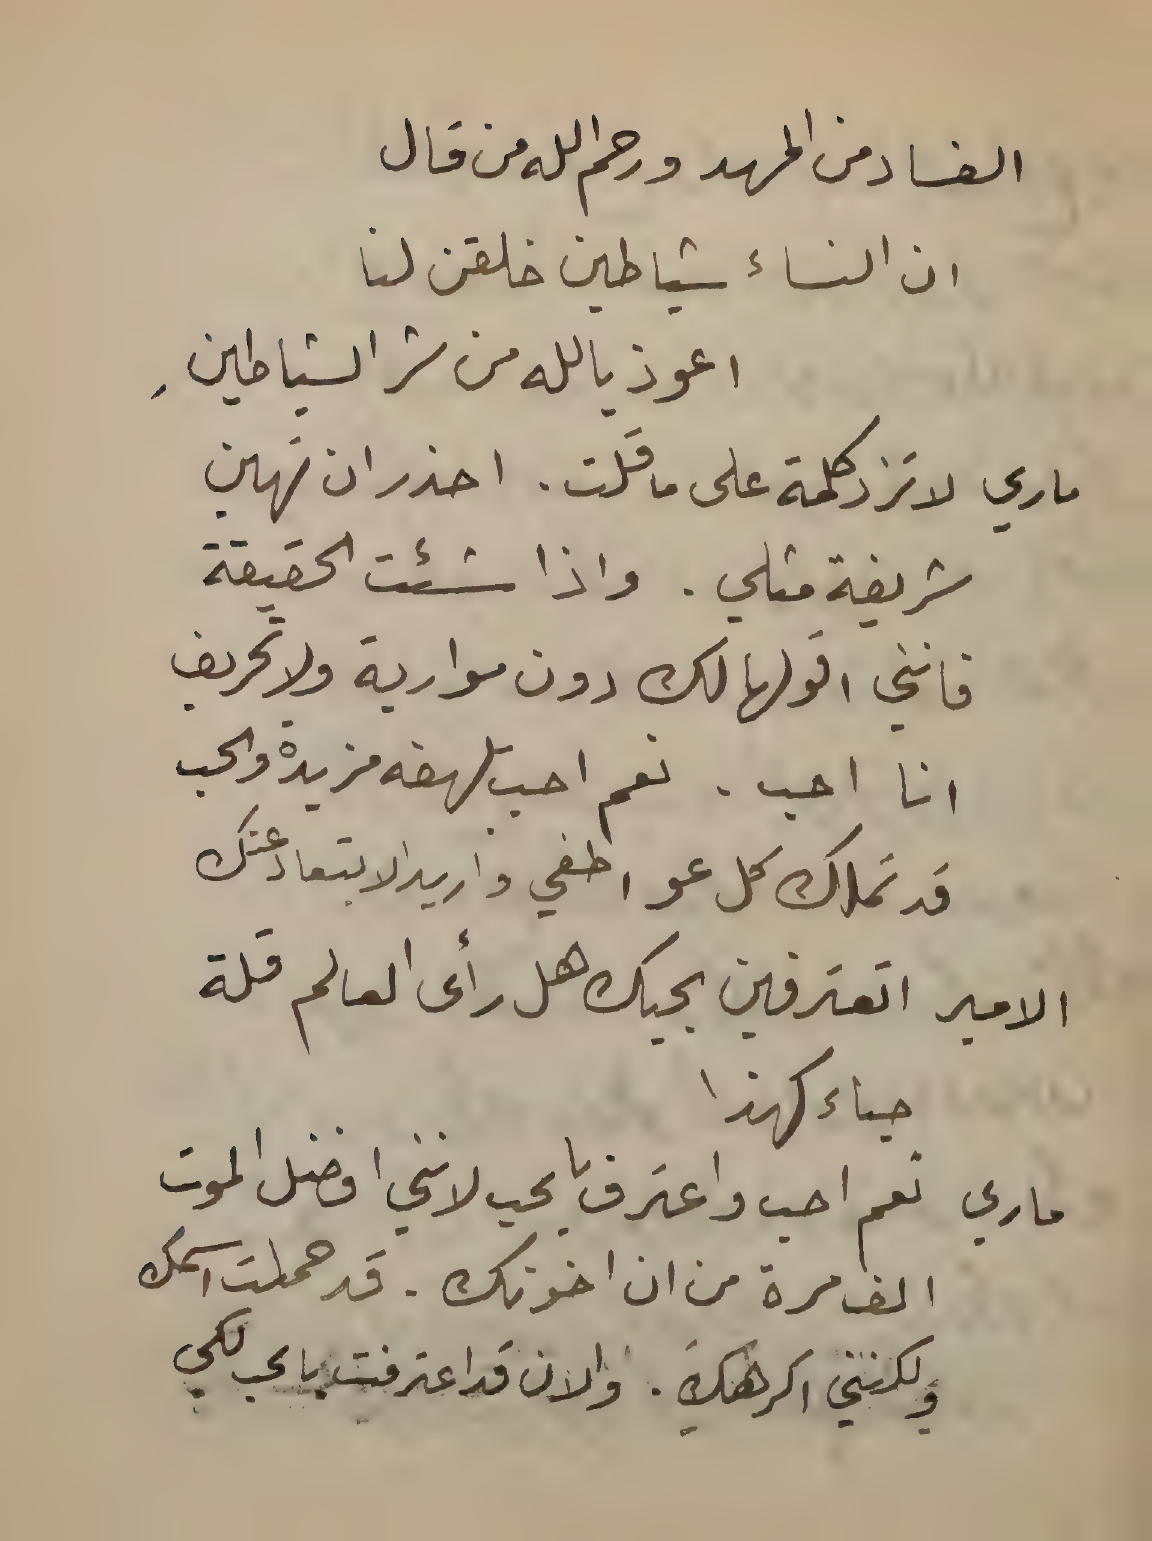 الفساد من المهد ورحم الله من قال
ان النساء شياطين خلقن لنا
اعوذ بالله من شر الشياطين
ماري لا تزد كلمة على ما قلت . احذر ان تهين
شريفة مثلي . واذا شئت الحقيقة
فانني اقولها لك دون مواربة ولا تحريف
انا احب . نعم احب بلهفه مزيدة والحب
قد تملك كل عواطفي واريد الابتعاد عنك
الامير اتعترفين بحبك هل رأى العالم قلة
حياء كهذا
ماري نعم احب واعترف بالحب لانني افضل الموت
الف مرة من ان اخونك . قد حملت اسمك
ولكنني اكرهك . والان قد اعترفت بالحب لكي